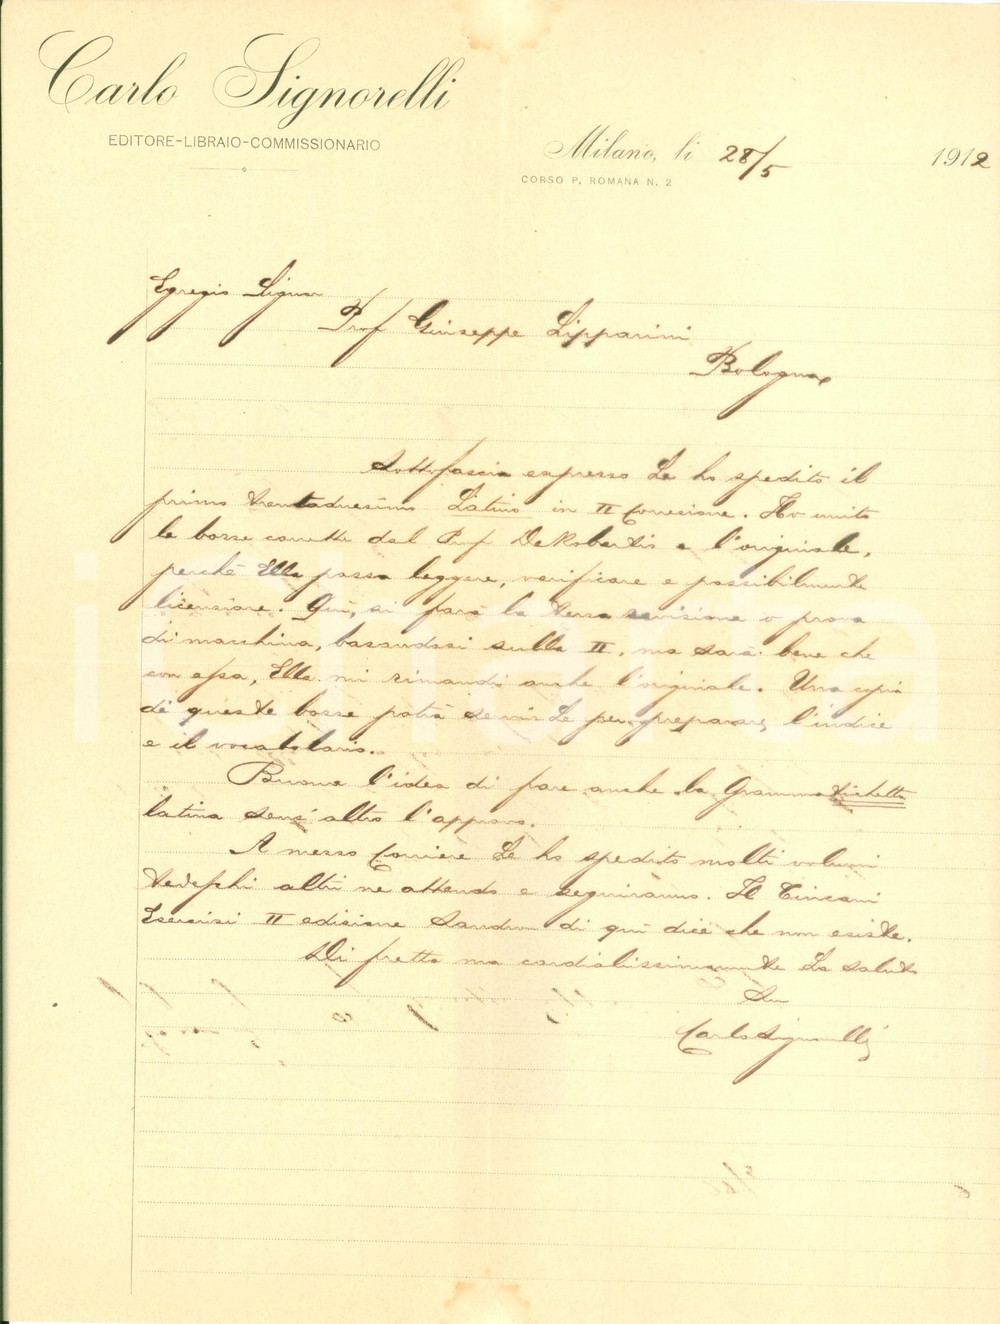 Carlo Signorelli
EDITORE-LIBRAIO-COMMISSIONARIO
Milano, li 28/5 1912
CORSO P. ROMANA N. 2
Egregio Signor
Prof Giuseppe Lipparini
Bologna
Sottofascia espresso Le ho spedito il
primo trentaduesimo Latino in II Correzione. Ho unito
le bozze corrette dal Prof DeRobertis e l'originale,
perchè Ella possa leggere, verificare e possibilmente
licenziare. Qui, si farà la terza revisione o prova
di macchina, basandosi sulla II, ma sarà bene che
con essa, Ella mi rimandi anche l'originale. Una copia
di queste bozze potrà servirLe per preparare l'indice
e il vocabolario.
Buona l'idea di fare anche la Grammatichetta
latina senz'altro l'approvo.
A mezzo Corriere Le ho spedito molti volumi
tedeschi altri ne attendo e seguiranno. Il
Esercizi II edizione Sandron di qui dice che non esiste.
Di fretta ma cordialissimamente La saluto
Suo
Carlo Signorelli